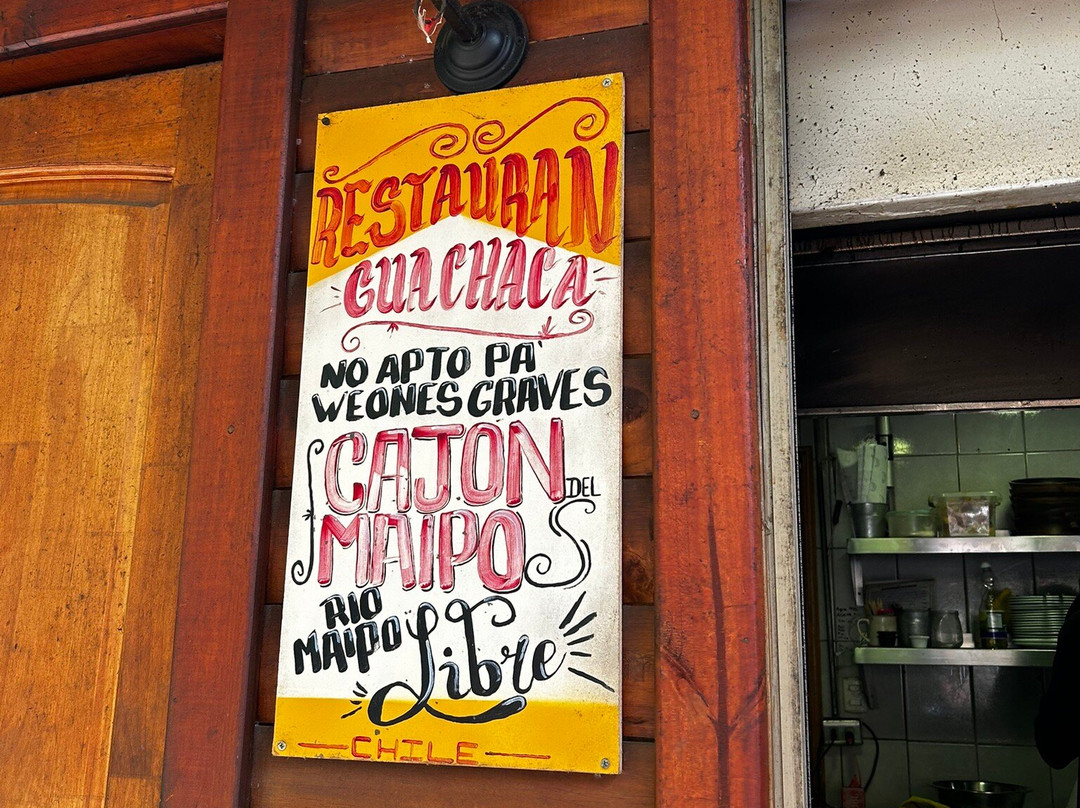 RESTAURAN
GUACHACA
NO APTO PA'
WEONES GRAVES
CAJON
DEL
MAIPO
RIO
MAIPO
Libre
CHILE